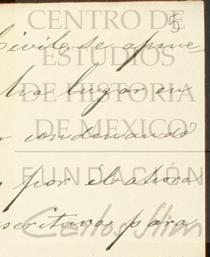 5
Civil, se apruе
tra lugar en
r condenando
s por él ahora
scrituras para
CENTRO DE
ESTUDIOS
DE HISTORIA
DE MEXICO
FUNDACIÓN
Carlos Slim